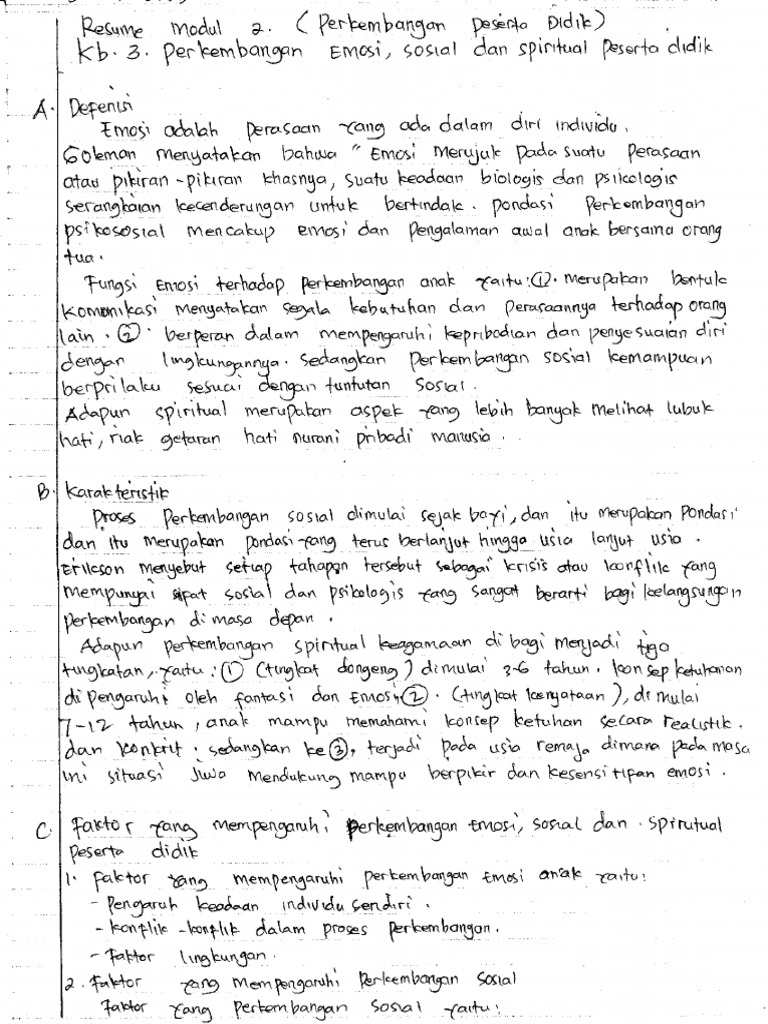 Resume Modul 2. (Perkembangan Peserta Didik)
Kb. 3. Perkembangan Emosi, sosial dan spiritual Peserta didik
A. Defenisi
Emosi adalah perasaan yang ada dalam diri individu.
Goleman menyatakan bahwa "Emosi Merujuk pada suatu perasaan
atau pikiran-pikiran khasnya, suatu keadaan biologis dan psikologis
serangkaian kecenderungan untuk bertindak. pondasi perkembangan
psikososial mencakup emosi dan Pengalaman awal anak bersama orang
tua.
Fungsi Emosi terhadap perkembangan anak yaitu: ①. merupakan bentuk
komunikasi menyatakan segala kebutuhan dan perasaannya terhadap orang
lain. ②. berperan dalam mempengaruhi kepribadian dan penyesuaian diri
dengan lingkungannya. sedangkan perkembangan sosial kemampuan
berprilaku sesuai dengan tuntutan sosial.
Adapun spiritual merupakan aspek yang lebih banyak melihat lubuk
hati, riak getaran hati nurani pribadi manusia.
B. Karakteristik
Proses Perkembangan sosial dimulai sejak bayi, dan itu merupakan Pondasi
dan itu merupakan pondasi yang terus berlanjut hingga usia lanjut usia.
Erikson menyebut setiap tahapan tersebut sebagai krisis atau konflik yang
mempunyai sifat sosial dan psikologis yang sangat berarti bagi kelangsungan
perkembangan di masa depan.
Adapun perkembangan spiritual keagamaan di bagi menjadi tiga
tingkatan, yaitu: ① (tingkat dongeng) dimulai 3-6 tahun. konsep ketuhanan
di pengaruhi oleh fantasi dan Emosi, ②. (tingkat kenyataan), di mulai
7-12 tahun, anak mampu memahami konsep ketuhan secara realistik.
dan konkrit. sedangkan ke ③, terjadi pada usia remaja dimana pada masa
ini situasi jiwa mendukung mampu berpikir dan kesensitifan emosi.
C. Faktor yang mempengaruhi perkembangan Emosi, sosial dan spirutual
Peserta didik
1. faktor yang mempengaruhi perkembangan Emosi anak yaitu:
- pengaruh keadaan individu sendiri.
- konflik-konflik dalam proses perkembangan.
- Faktor lingkungan.
2. Faktor yang mempengaruhi Perkembangan Sosial
Faktor yang perkembangan sosial yaitu: